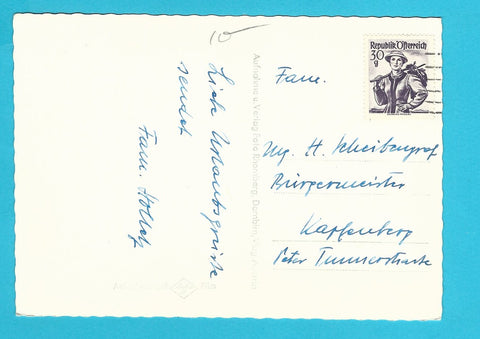 10
Liebe Urlaubsgrüße
sendet
Fam.
Aufnahme u. Verlag Foto Rhomberg, Dornbirn, Vorarlberg
Republik Österreich
30
g
Fam.
Ing. H. Scheibengraf
Bürgermeister
Kapfenberg
Peter Tunnerstraße